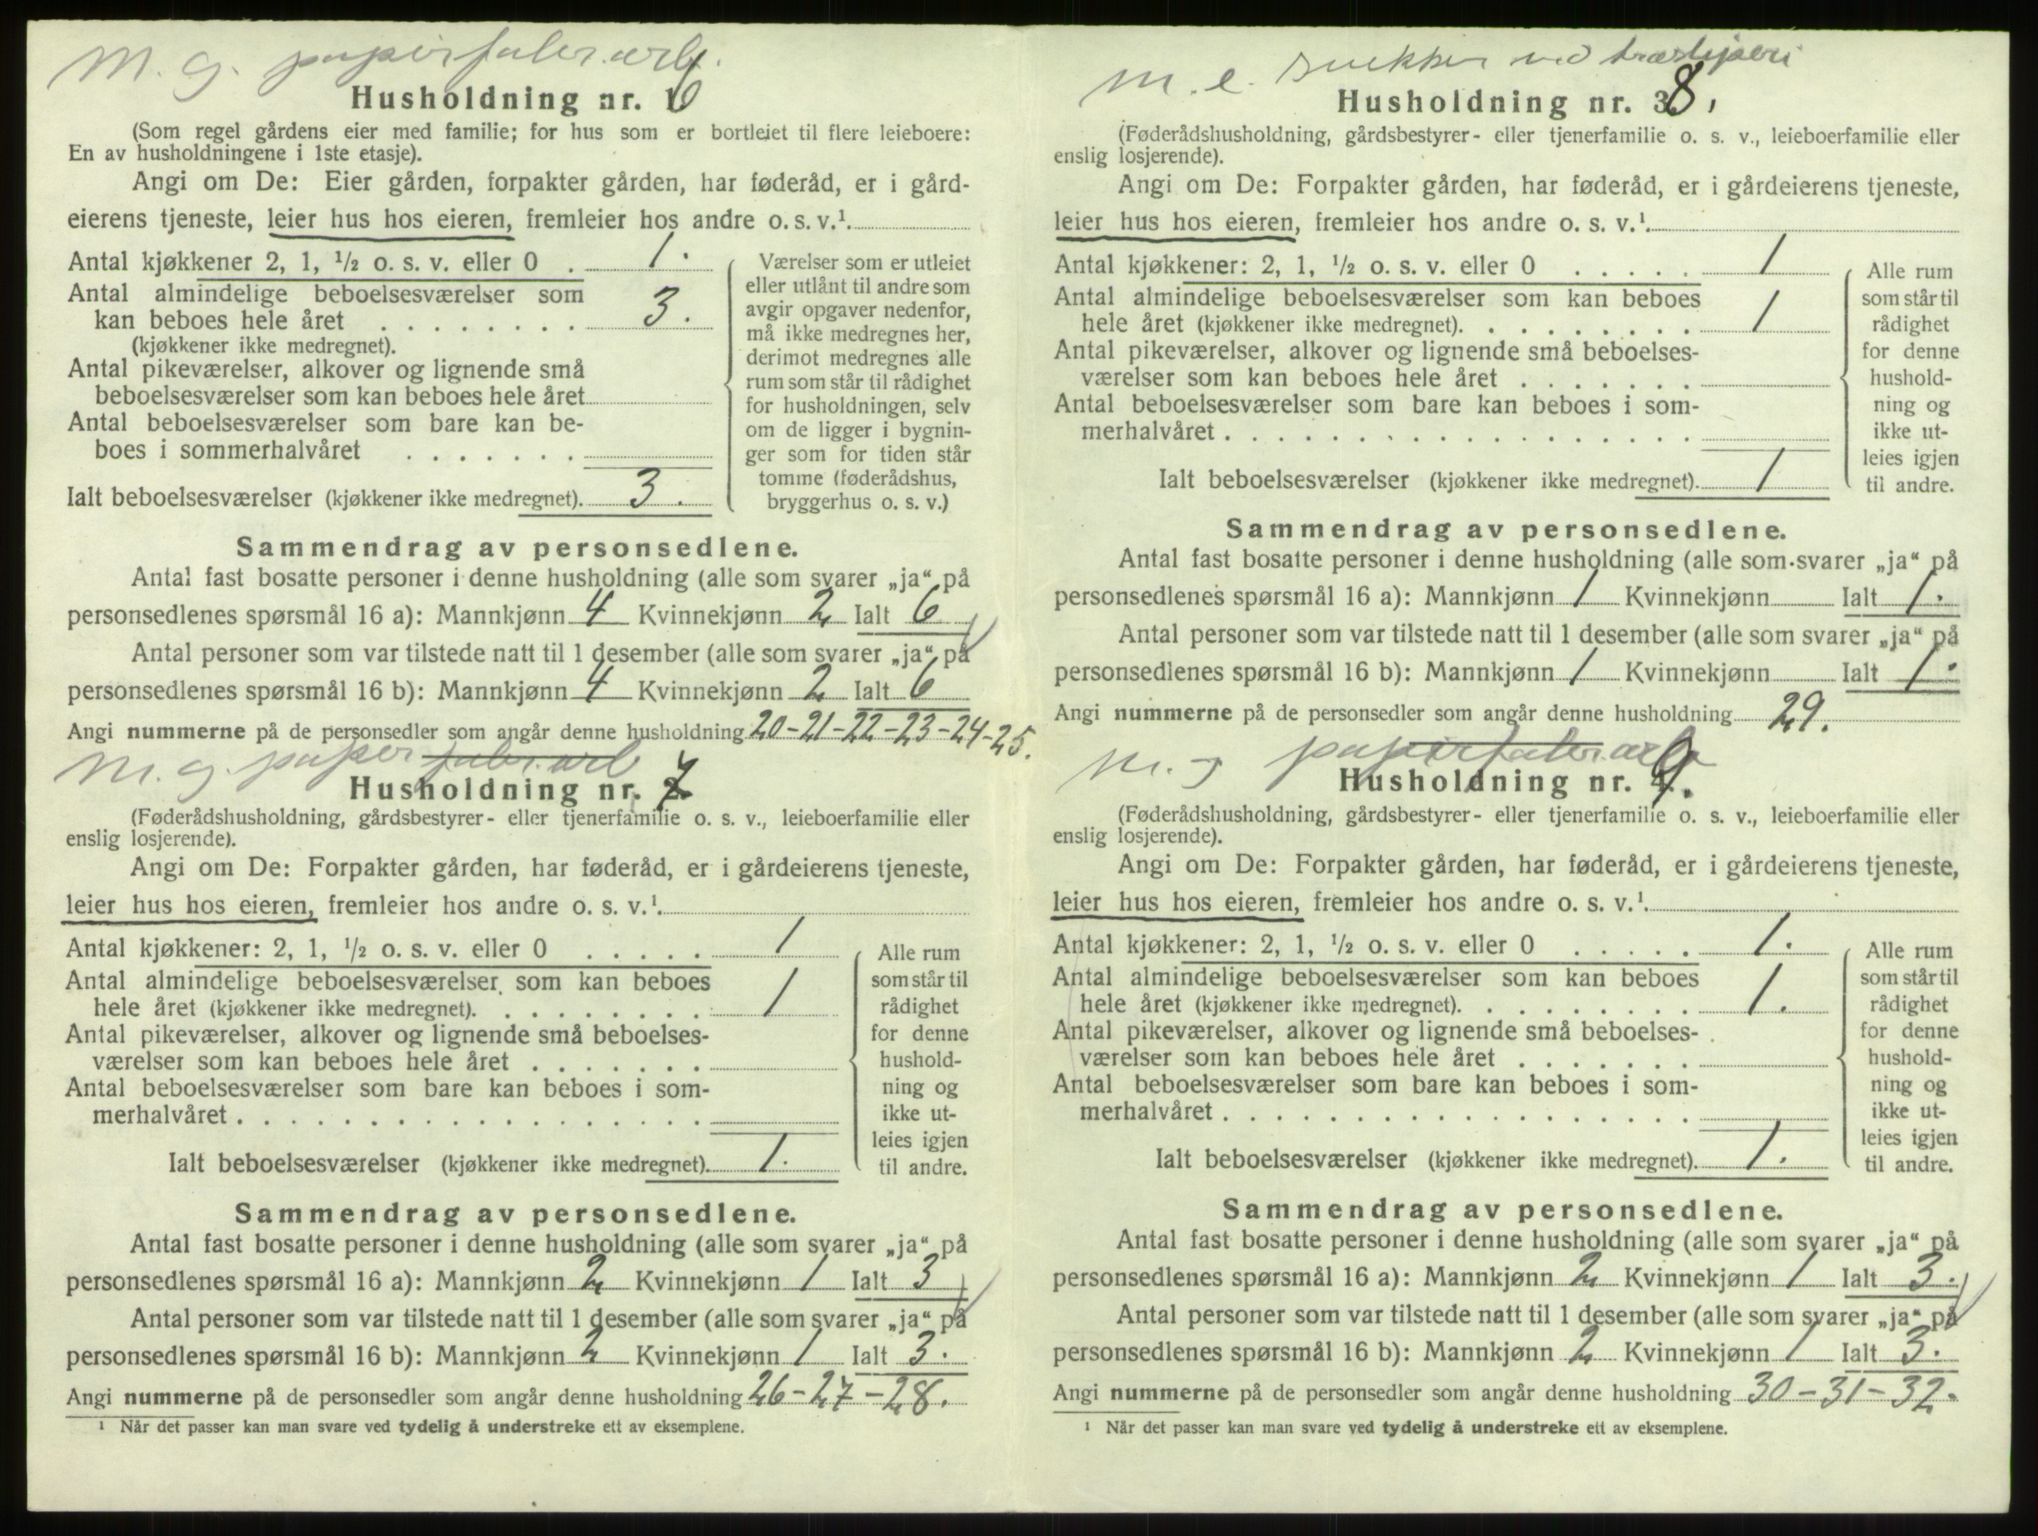 M. g. papirfabr.arb.
Husholdning nr. 6
(Som regel gårdens eier med familie; for hus som er bortleiet til flere leieboere:
En av husholdningene i 1ste etasje).
Angi om De: Eier gården, forpakter gården, har føderåd, er i gård-
eierens tjeneste, leier hus hos eieren, fremleier hos andre o. s. v.¹.
Antal kjøkkener 2, 1, ½ o. s. v. eller 0 . 1.
Antal almindelige beboelsesværelser som
kan beboes hele året . . . . . . . . 3.
(kjøkkener ikke medregnet).
Antal pikeværelser, alkover og lignende små
beboelsesværelser som kan beboes hele året
Antal beboelsesværelser som bare kan be-
boes i sommerhalvåret . . . . . . .
Ialt beboelsesværelser (kjøkkener ikke medregnet). 3.
Værelser som er utleiet
eller utlånt til andre som
avgir opgaver nedenfor,
må ikke medregnes her,
derimot medregnes alle
rum som står til rådighet
for husholdningen, selv
om de ligger i bygnin-
ger som for tiden står
tomme (føderådshus,
bryggerhus o. s. v.)
Sammendrag av personsedlene.
Antal fast bosatte personer i denne husholdning (alle som svarer „ja“ på
personsedlenes spørsmål 16 a): Mannkjønn 4 Kvinnekjønn 2 Ialt 6
Antal personer som var tilstede natt til 1 desember (alle som svarer „ja“ på
personsedlenes spørsmål 16 b): Mannkjønn 4 Kvinnekjønn 2 Ialt 6
Angi nummerne på de personsedler som angår denne husholdning 20-21-22-23-24-25.
M. g. papirfabr.arb
Husholdning nr. 7
(Føderådshusholdning, gårdsbestyrer- eller tjenerfamilie o. s. v., leieboerfamilie eller
enslig losjerende).
Angi om De: Forpakter gården, har føderåd, er i gårdeierens tjeneste,
leier hus hos eieren, fremleier hos andre o. s. v.¹.
Antal kjøkkener: 2, 1, ½ o. s. v. eller 0 . . . . . 1
Antal almindelige beboelsesværelser som kan beboes
hele året (kjøkkener ikke medregnet). . . . . . . . . 1
Antal pikeværelser, alkover og lignende små beboelses-
værelser som kan beboes hele året . . . . . . .
Antal beboelsesværelser som bare kan beboes i som-
merhalvåret . . . . . . . . . . . . . . . . . .
Ialt beboelsesværelser (kjøkkener ikke medregnet). 1.
Alle rum
som står til
rådighet
for denne
hushold-
ning og
ikke ut-
leies igjen
til andre.
Sammendrag av personsedlene.
Antal fast bosatte personer i denne husholdning (alle som svarer „ja“ på
personsedlenes spørsmål 16 a): Mannkjønn 2 Kvinnekjønn 1 Ialt 3
Antal personer som var tilstede natt til 1 desember (alle som svarer „ja“ på
personsedlenes spørsmål 16 b): Mannkjønn 2 Kvinnekjønn 1 Ialt 3.
Angi nummerne på de personsedler som angår denne husholdning 26-27-28.
¹ Når det passer kan man svare ved tydelig å understreke ett av eksemplene.
M. e. snekker ved træsliperi
Husholdning nr. 8.
(Føderådshusholdning, gårdsbestyrer- eller tjenerfamilie o. s. v., leieboerfamilie eller
enslig losjerende).
Angi om De: Forpakter gården, har føderåd, er i gårdeierens tjeneste,
leier hus hos eieren, fremleier hos andre o. s. v.¹.
Antal kjøkkener: 2, 1, ½ o. s. v. eller 0 . . . . . 1
Antal almindelige beboelsesværelser som kan beboes
hele året (kjøkkener ikke medregnet). . . . . . . . . 1
Antal pikeværelser, alkover og lignende små beboelses-
værelser som kan beboes hele året . . . . . . .
Antal beboelsesværelser som bare kan beboes i som-
merhalvåret . . . . . . . . . . . . . . . . . .
Ialt beboelsesværelser (kjøkkener ikke medregnet). 1
Alle rum
som står til
rådighet
for denne
hushold-
ning og
ikke ut-
leies igjen
til andre.
Sammendrag av personsedlene.
Antal fast bosatte personer i denne husholdning (alle som svarer „ja“ på
personsedlenes spørsmål 16 a): Mannkjønn 1 Kvinnekjønn Ialt 1.
Antal personer som var tilstede natt til 1 desember (alle som svarer „ja“ på
personsedlenes spørsmål 16 b): Mannkjønn 1 Kvinnekjønn Ialt 1.
Angi nummerne på de personsedler som angår denne husholdning 29.
M. g papirfabr.arb
Husholdning nr. 9.
(Føderådshusholdning, gårdsbestyrer- eller tjenerfamilie o. s. v., leieboerfamilie eller
enslig losjerende).
Angi om De: Forpakter gården, har føderåd, er i gårdeierens tjeneste,
leier hus hos eieren, fremleier hos andre o. s. v.¹.
Antal kjøkkener: 2, 1, ½ o. s. v. eller 0 . . . . . 1.
Antal almindelige beboelsesværelser som kan beboes
hele året (kjøkkener ikke medregnet). . . . . . . . . 1.
Antal pikeværelser, alkover og lignende små beboelses-
værelser som kan beboes hele året . . . . . . .
Antal beboelsesværelser som bare kan beboes i som-
merhalvåret . . . . . . . . . . . . . . . . . .
Ialt beboelsesværelser (kjøkkener ikke medregnet). 1.
Alle rum
som står til
rådighet
for denne
hushold-
ning og
ikke ut-
leies igjen
til andre.
Sammendrag av personsedlene.
Antal fast bosatte personer i denne husholdning (alle som svarer „ja“ på
personsedlenes spørsmål 16 a): Mannkjønn 2 Kvinnekjønn 1 Ialt 3.
Antal personer som var tilstede natt til 1 desember (alle som svarer „ja“ på
personsedlenes spørsmål 16 b): Mannkjønn 2 Kvinnekjønn 1 Ialt 3.
Angi nummerne på de personsedler som angår denne husholdning 30-31-32.
¹ Når det passer kan man svare ved tydelig å understreke ett av eksemplene.